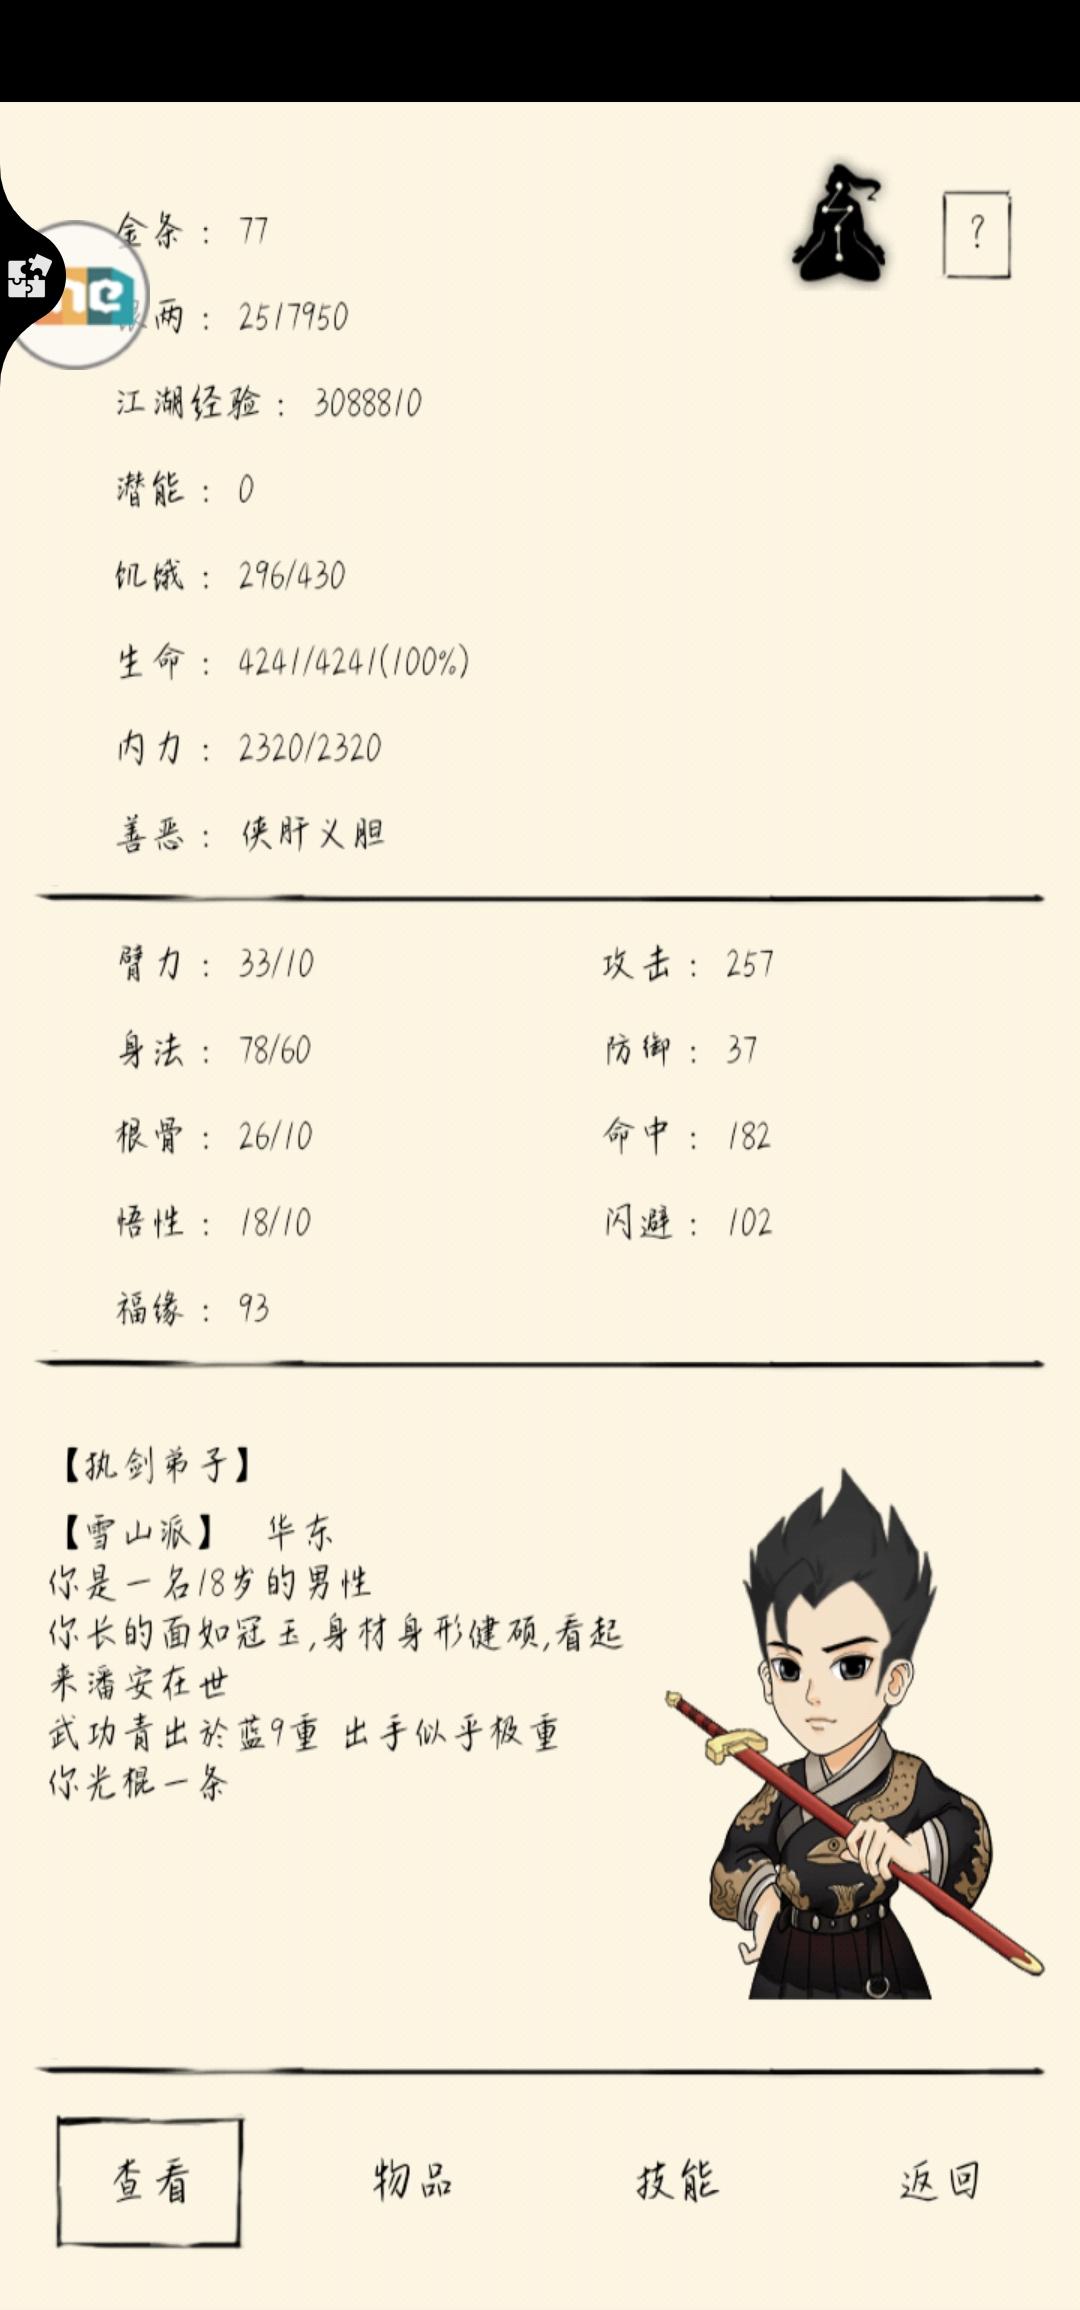 金条： 77
?
银两： 2517950
江湖经验： 3088810
潜能： 0
饥饿： 296/430
生命： 4241/4241(100%)
内力： 2320/2320
善恶： 侠肝义胆
臂力： 33/10 攻击： 257
身法： 78/60 防御： 37
根骨： 26/10 命中： 182
悟性： 18/10 闪避： 102
福缘： 93
【执剑弟子】
【雪山派】 华东
你是一名18岁的男性
你长的面如冠玉,身材身形健硕,看起
来潘安在世
武功青出於蓝9重 出手似乎极重
你光棍一条
查看 物品 技能 返回